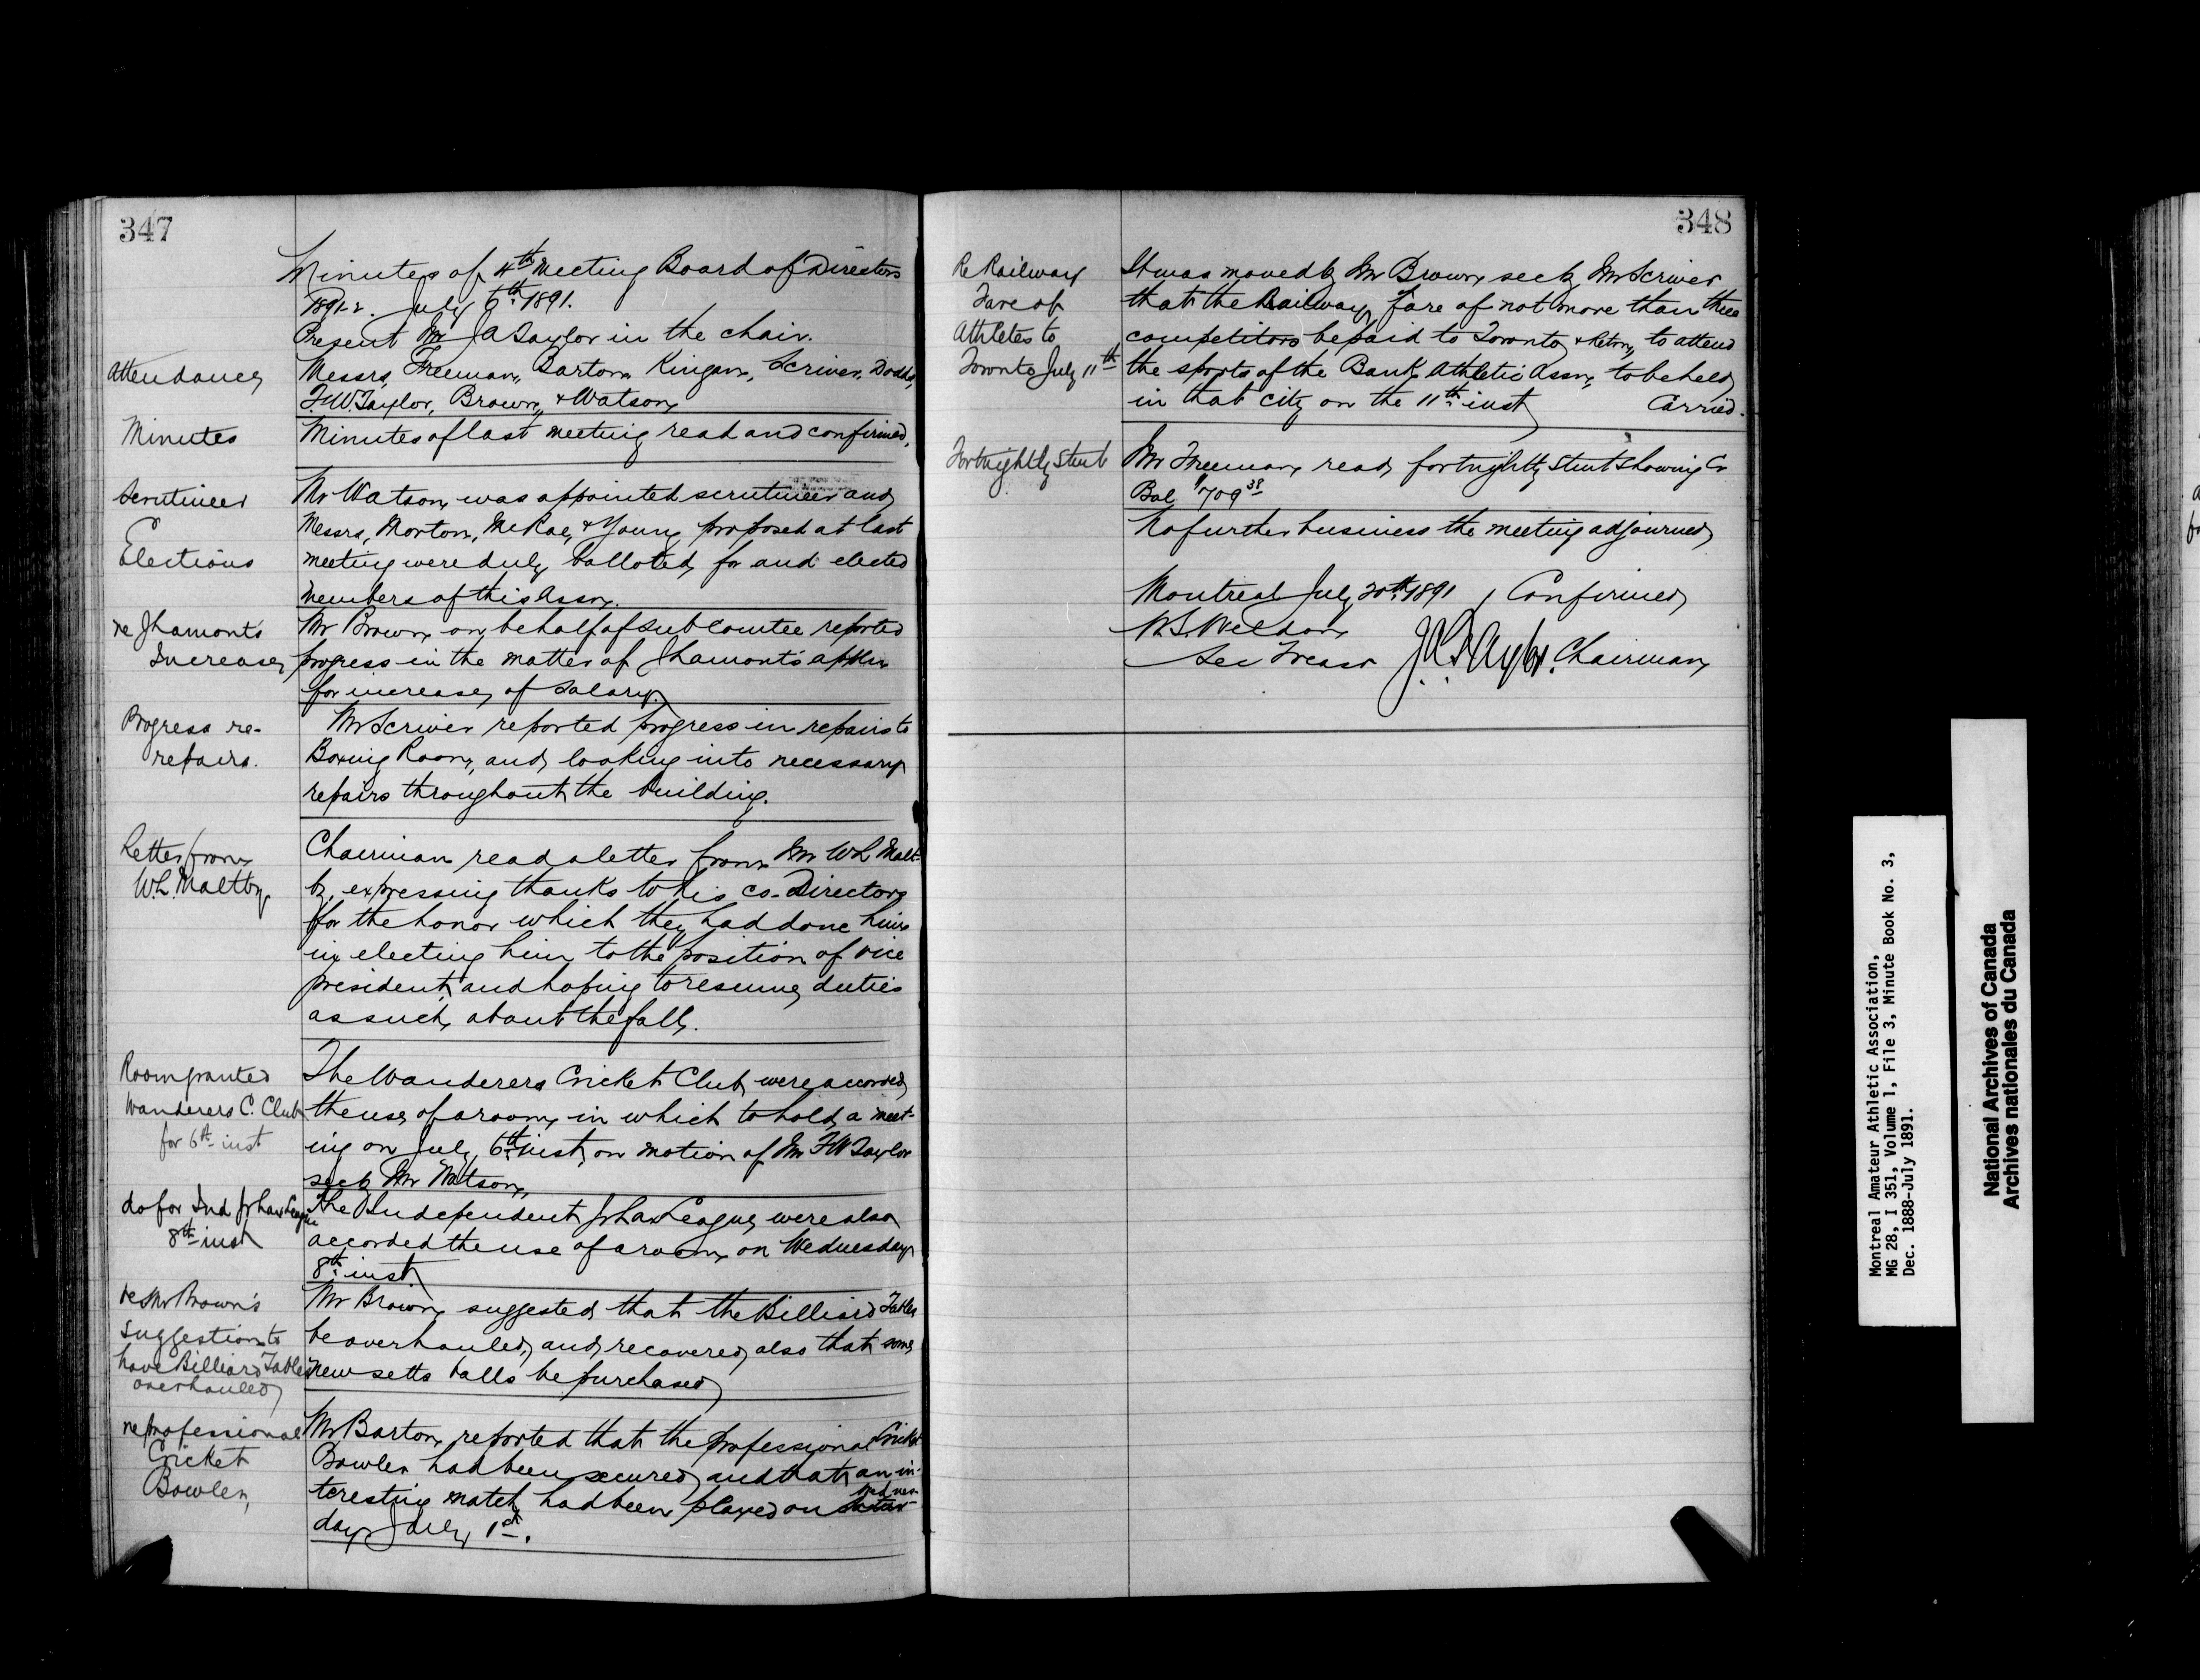 347
Minutes of 4th Meeting Board of Directors
1891-2. July 6th 1891.
Present Mr J A Taylor in the chair.
Attendance
Messrs, Freeman, Barton, Kingan, Scriver, Dodds,
F. W. Taylor, Brown, & Watson,
Minutes
Minutes of last meeting read and confirmed,
Scrutineer
Mr Watson, was appointed scrutineer and
Elections
Messrs, Morton, McRae, & Young proposed at last
meeting were duly balloted, for and elected
members of this Assn.
re Jhamont's
Increase,
Mr Brown, on behalf of sub comtee reported
progress in the matter of Jhamont's appln
for increase, of Salary.
Progress re-
repairs.
Mr Scriver reported progress in repairs to
Boxing Room, and looking into necessary
repairs throughout the building.
Letter from
W.L. Maltby,
Chairman read a letter from Mr W L Malt-
by, expressing thanks to his co-Directors
for the honor which they had done him
in electing him to the position of vice
president, and hoping to resume, duties
as such, about the fall,.
Room granted
Wanderers C. Club
for 6th inst
The Wanderers Cricket Club, were accorded
the use, of a room, in which to hold, a meet-
ing on July 6th inst, on motion of Mr F W Taylor
sec by Mr Watson,
do for Ind Jr Lax League
8th inst
The Independent Jr Lax League, were also
accorded the use of a room, on Wednesday
8th inst
re Mr Brown's
suggestion to
have Billiard Tables
overhauled
Mr Brown, suggested that the Billiard Tables
be overhauled, and, recovered, also that some
new setts balls be purchased
re professional
Cricket
Bowler,
Mr Barton, reported that the professional Cricket
Bowler had been secured, and that an in-
teresting match had been played on Wednes-
day July 1st.
348
Re Railway
Fare of
Athletes to
Toronto July 11th
It was moved by Mr Brown, sec by Mr Scriver
that the Railway fare of not more than three
competitors be paid to Toronto, & retn, to attend
the sports of the Bank Athletic Assn, to be held
in that city on the 11th inst Carried.
Fortnightly Stmt
Mr Freeman, read, fortnightly Stmt showing Cr
Bal $709 38
No further business the meeting adjourned,
Montreal July 20th 1891, Confirmed,
W.S. Weldon,
Sec Treasr
J. A. Taylor. Chairman,
Montreal Amateur Athletic Association,
MG 28, I 351, Volume 1, File 3, Minute Book No. 3,
Dec. 1888-July 1891.
National Archives of Canada
Archives nationales du Canada